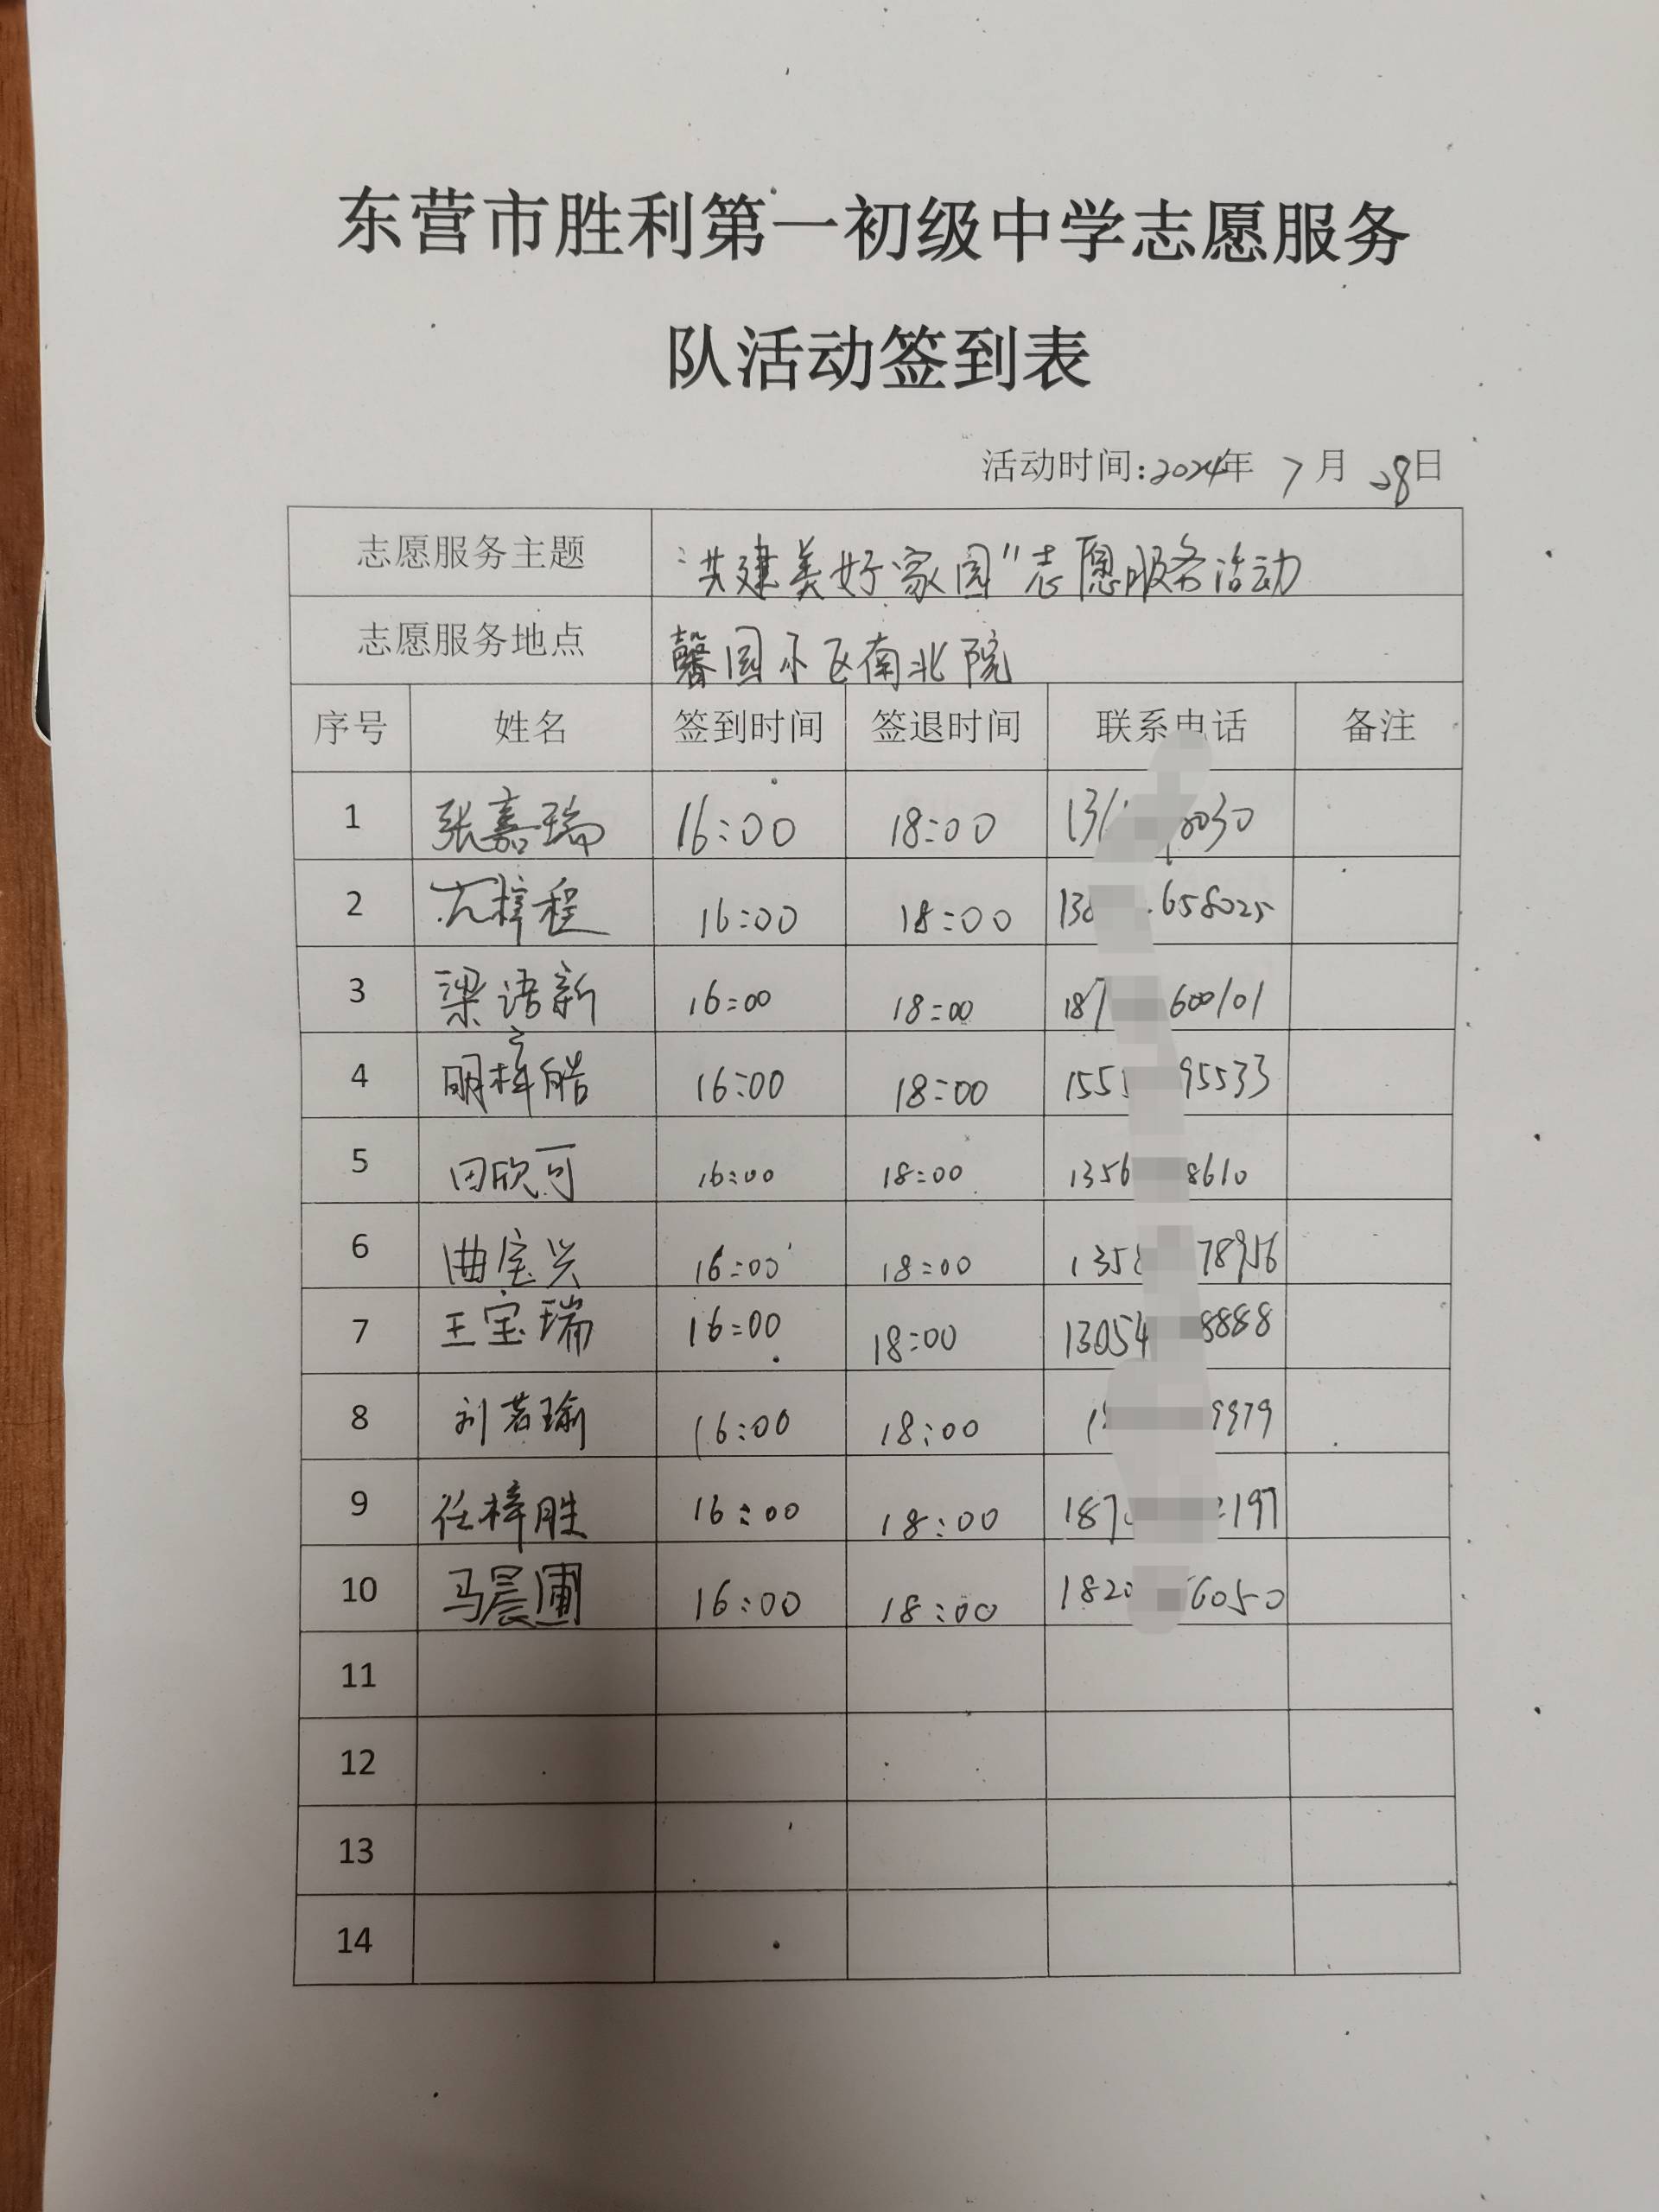 东营市胜利第一初级中学志愿服务
队活动签到表
活动时间:2024年 7月 28日
志愿服务主题 “共建美好家园”志愿服务活动
志愿服务地点 馨园小区南北院
序号 姓名 签到时间 签退时间 联系电话 备注
1 张嘉瑞 16:00 18:00
2 梓程 16:00 18:00 658025
3 梁语新 16:00 18:00 600101
4 明梓皓 16:00 18:00 155 95533
5 田欣可 16:00 18:00 1356 8610
6 曲宝兴 16:00 18:00 135 78956
7 王宝瑞 16:00 18:00 13054 8888
8 刘若瑜 16:00 18:00 9979
9 任梓胜 16:00 18:00 187 197
10 马晨圃 16:00 18:00 1820 6050
11
12
13
14